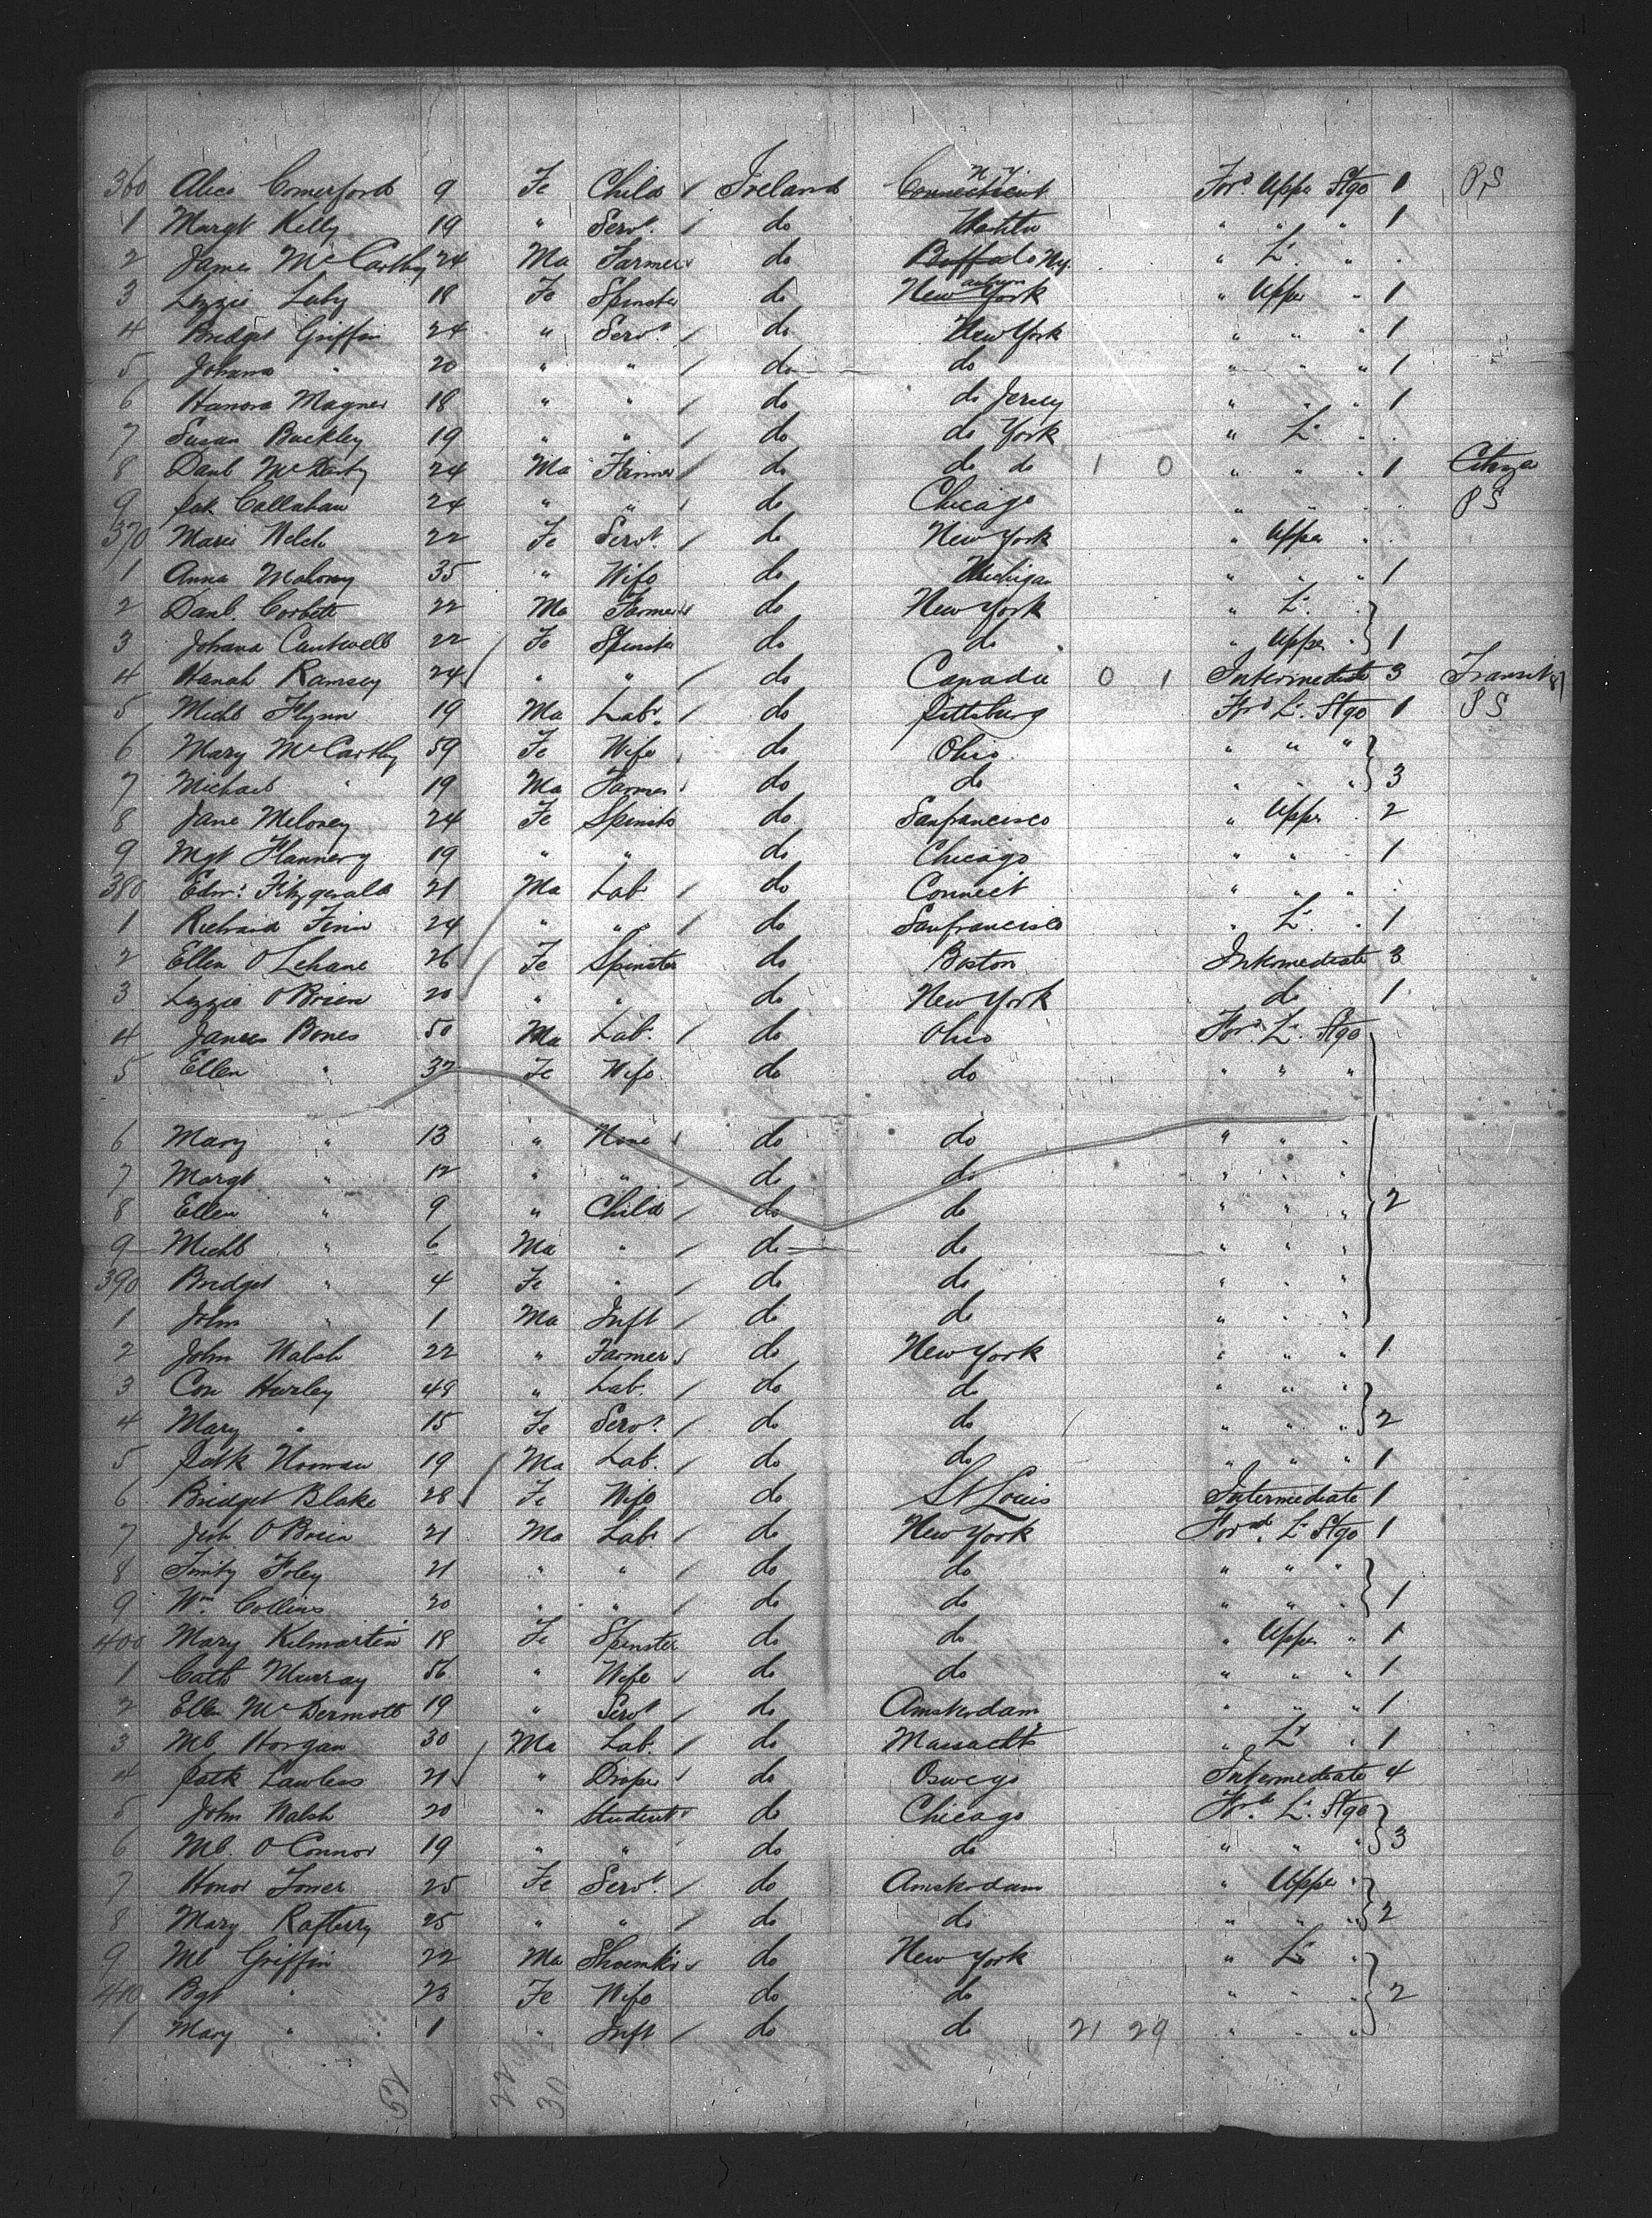 360 Alice Comerford 9 Fe Child / Ireland Connecticut N.Y. For'd Upper Stge 1 PS
1 Margt Kelly 19 " Servt. / do " " " 1
2 James McCarthy 24 Ma Farmer do Buffalo N.Y. " L'r "
3 Lizzie Luby 18 Fe Spinster do New York " Upper " 1
4 Bridget Griffin 24 " Servt. / do New York " " " 1
5 Johana " 20 " " / do do " " " 1
6 Hanora Magner 18 " " / do do Jersey " " " 1
7 Susan Buckley 19 " " / do do York " L'r "
8 Danl McCarty 24 Ma Farmer do do do 1 0 " " " 1 Citizen
9 Pat Callahan 24 " " do Chicago " " " PS
370 Marie Welch 22 Fe Servt. / do New York " Upper "
1 Anna Mahony 35 " Wife do Michigan " " " 1
2 Danl. Corbett 22 Ma Farmer do New York " L'r "
3 Johana Cantwell 22 / Fe Spinster do do " Upper " 1
4 Hanah Ramsey 24 / " " / do Canada 0 1 Intermediate 3 Transit
5 Michl Flynn 19 Ma Lab'r / do Pittsburg For'd L'r Stge 1 PS
6 Mary McCarthy 59 Fe Wife do Ohio " " "
7 Michael " 19 Ma Farmer do do " " " 3
8 Jane Meloney 24 Fe Spinster do Sanfrancisco " Upper " 2
9 Mgt Flannery 19 " " do Chicago " " " 1
380 Edw'd Fitzgerald 21 Ma Lab'r / do Connect " " "
1 Richard Finn 24 " " / do Sanfrancisco " L'r " 1
2 Ellen O'Lehane 26 / Fe Spinster do Boston Intermediate 3
3 Lizzie O'Brien 20 / " " do New York do 1
4 James Bones 50 Ma Lab'r / do Ohio For'd L'r Stge
5 Ellen " 32 Fe Wife do do " " "
6 Mary " 13 " None do do " " "
7 Margt " 12 " " do do " " "
8 Ellen " 9 " Child / do do " " " 2
9 Michl " 6 Ma " / do do " " "
390 Bridget " 4 Fe " / do do " " "
1 John " 1 Ma Inft / do do " " "
2 John Walsh 22 " Farmer do New York " " " 1
3 Con Hurley 49 " Lab'r / do do " " "
4 Mary " 15 Fe Servt. / do do " " " 2
5 Patk Noonan 19 / Ma Lab'r / do do " " " 1
6 Bridget Blake 28 / Fe Wife do St Louis Intermediate 1
7 O'Brien 21 Ma Lab'r / do New York For'd L'r Stge 1
8 Timty Foley 21 " " / do do " " "
9 Wm. Collins 20 " " / do do " " " 1
400 Mary Kilmartin 18 Fe Spinster do do " Upper " 1
1 Cath Murray 56 " Wife do do " " " 1
2 Ellen McDermott 19 " Servt / do Amsterdam " " " 1
3 Ml Horgan 30 Ma Lab'r / do Massachts " L'r " 1
4 Patk Lawless 21 / " Draper do Oswego Intermediate 4
5 John Walsh 20 " Student do Chicago For'd L'r Stge
6 Ml. O'Connor 19 " " do do " " " 3
7 Honor Joner 25 Fe Servt. / do Amsterdam " Upper "
8 Mary Rafterry 25 " " / do do " " " 2
9 Ml Griffin 22 Ma Shoemkr do New York " L'r "
410 Bgt " 23 Fe Wife do do " " " 2
1 Mary " 1 " Inft / do do 21 29 " " "
52 22 30